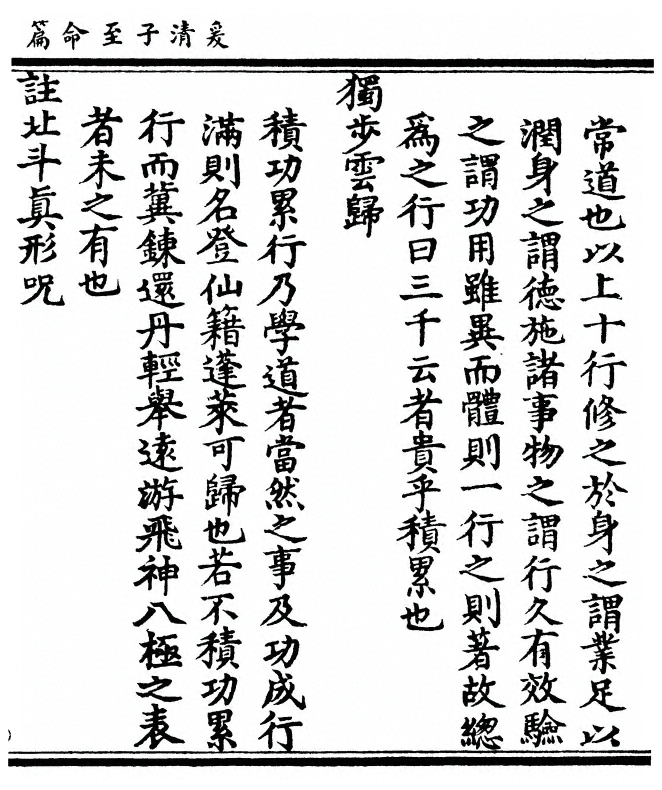 爰清子至命篇
常道也以上十行修之於身之謂業足以
潤身之謂德施諸事物之謂行久有效驗
之謂功用雖異而體則一行之則著故總
爲之行曰三千云者貴乎積累也
獨步雲歸
積功累行乃學道者當然之事及功成行
滿則名登仙籍蓬萊可歸也若不積功累
行而冀鍊還丹輕舉遠游飛神八極之表
者未之有也
註北斗眞形呪